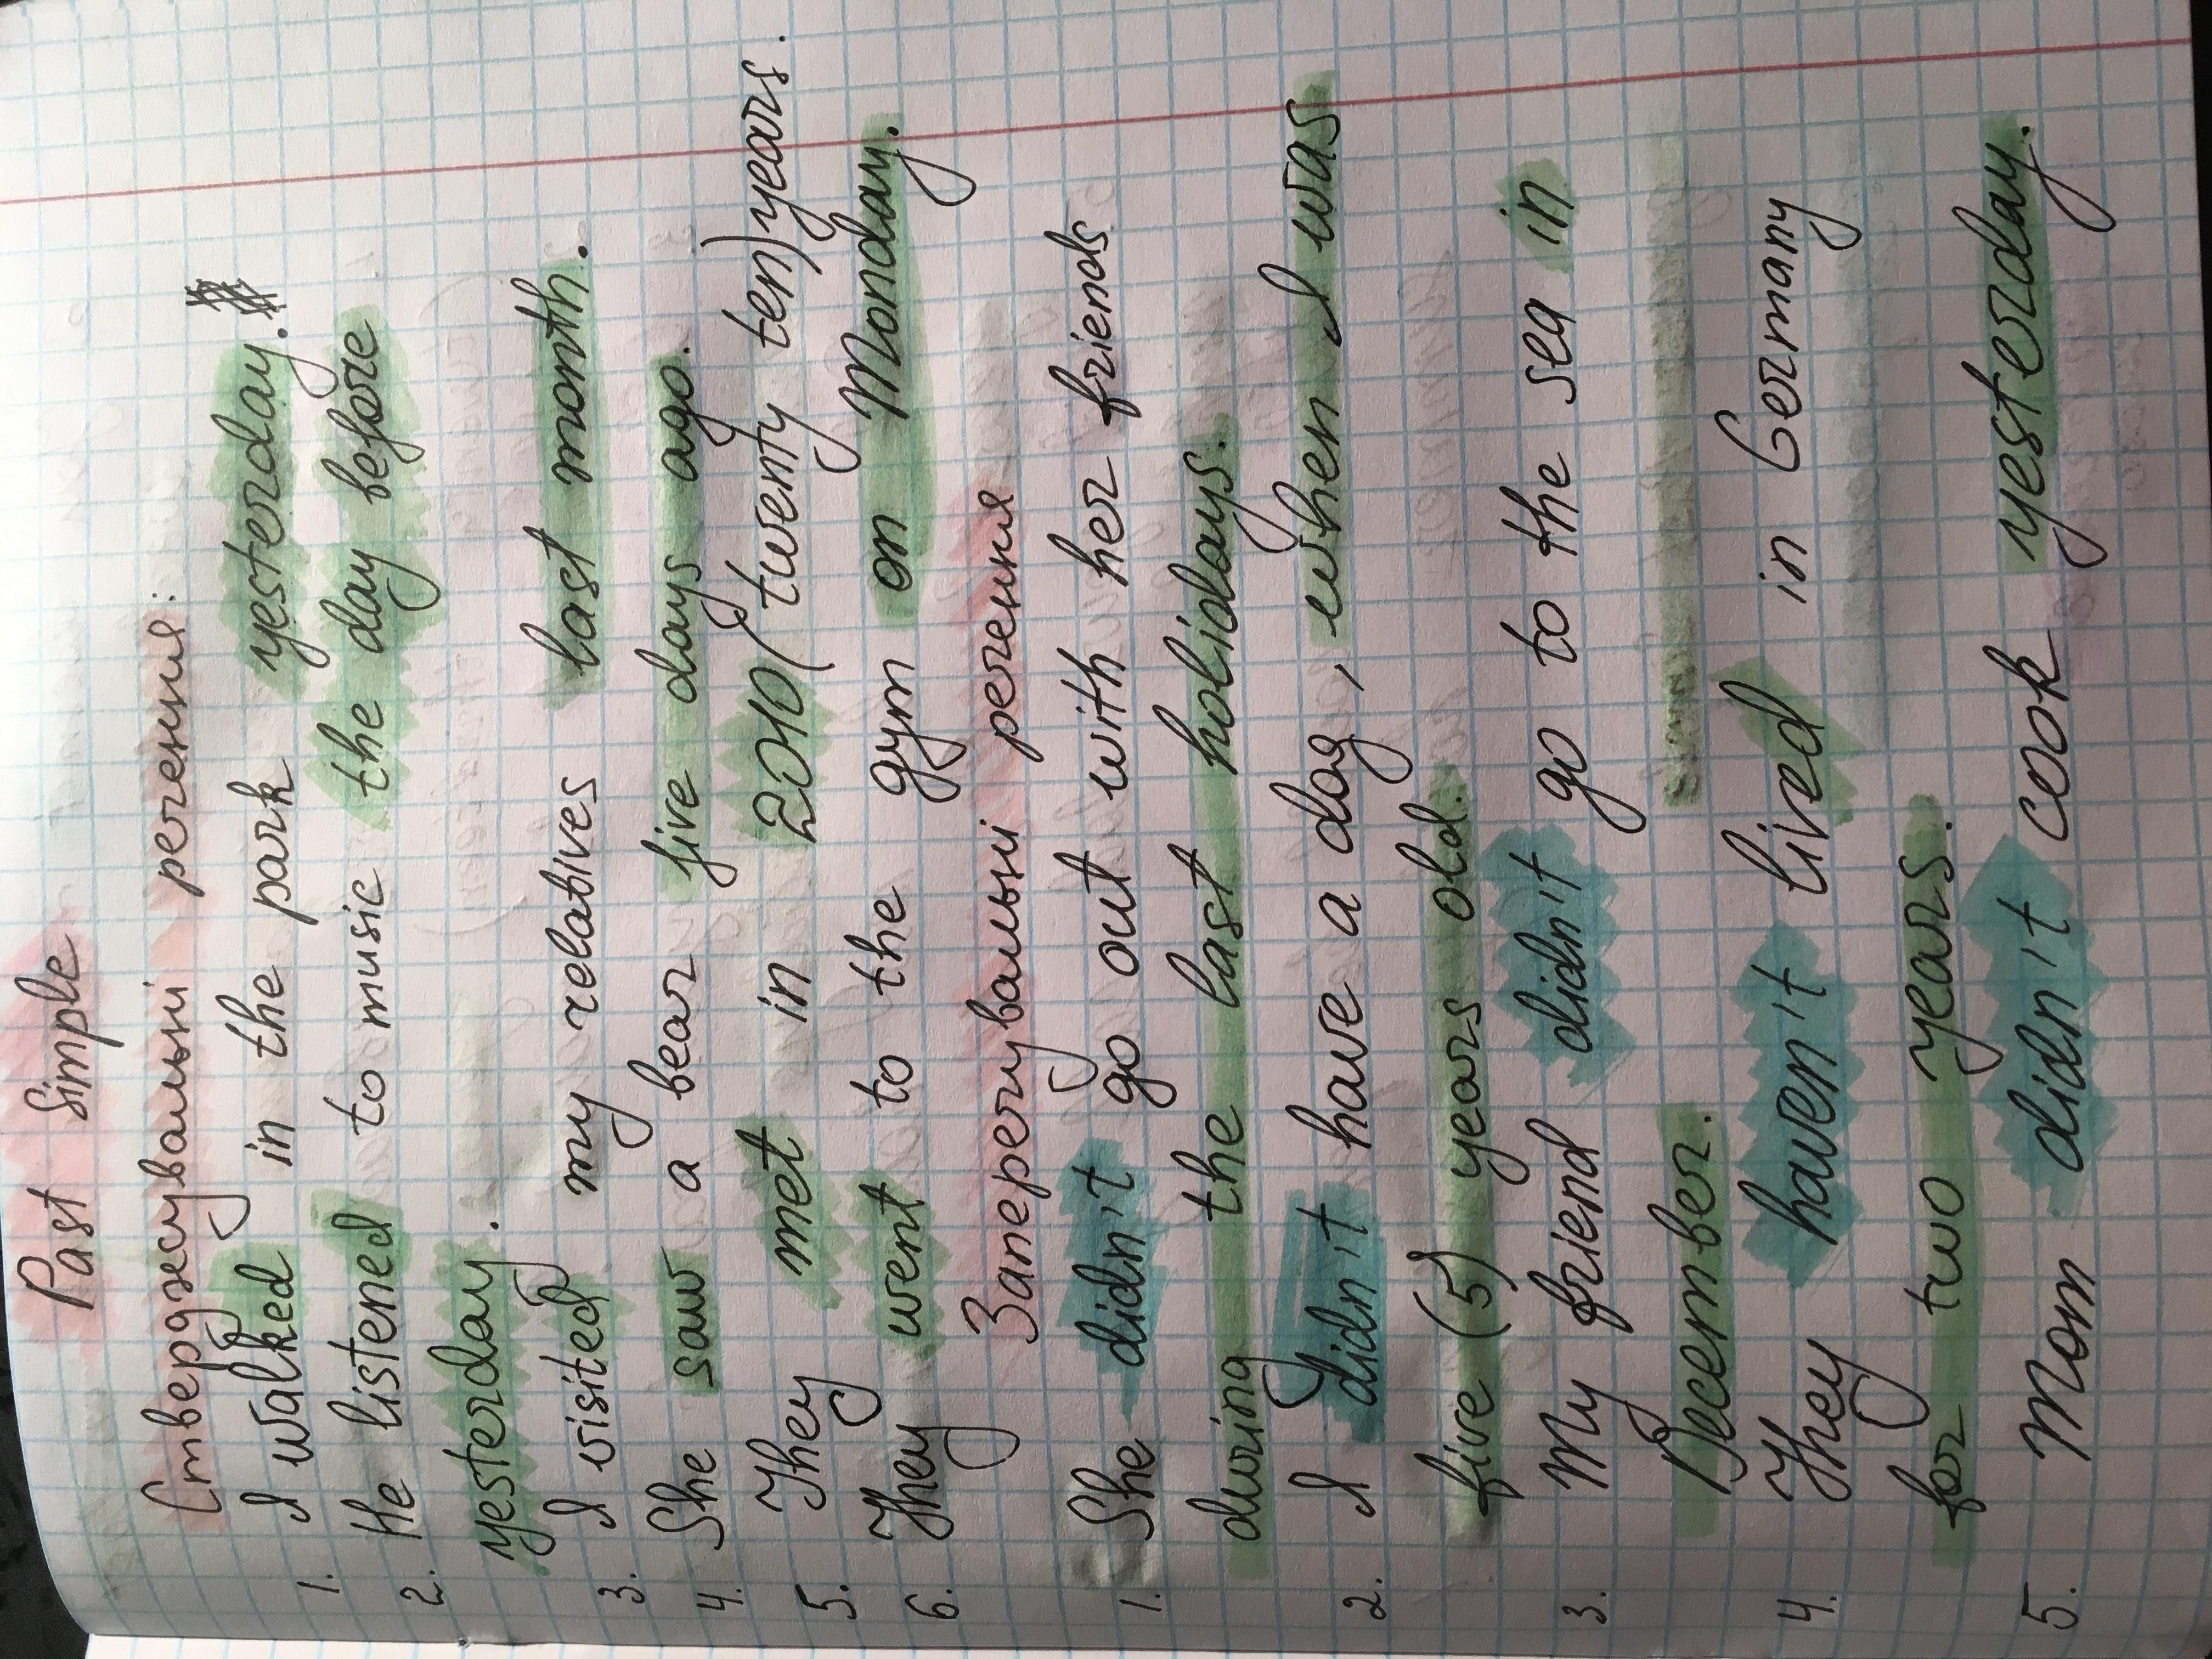 Past Simple
Стверджувальні речення:
1. I walked in the park yesterday.
2. He listened to music the day before
yesterday.
3. I visited my relatives last month.
4. She saw a bear five days ago.
5. They met in 2010 (twenty ten) years.
6. They went to the gym on Monday.
Заперечувальні речення
1. She didn't go out with her friends
during the last holidays.
2. I didn't have a dog, when I was
five (5) years old.
3. My friend didn't go to the sea in
December.
4. They haven't lived in Germany
for two years.
5. Mom didn't cook yesterday.